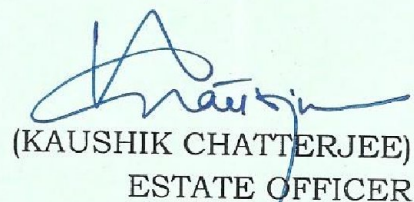 (KAUSHIK CHATTERJEE)
ESTATE OFFICER